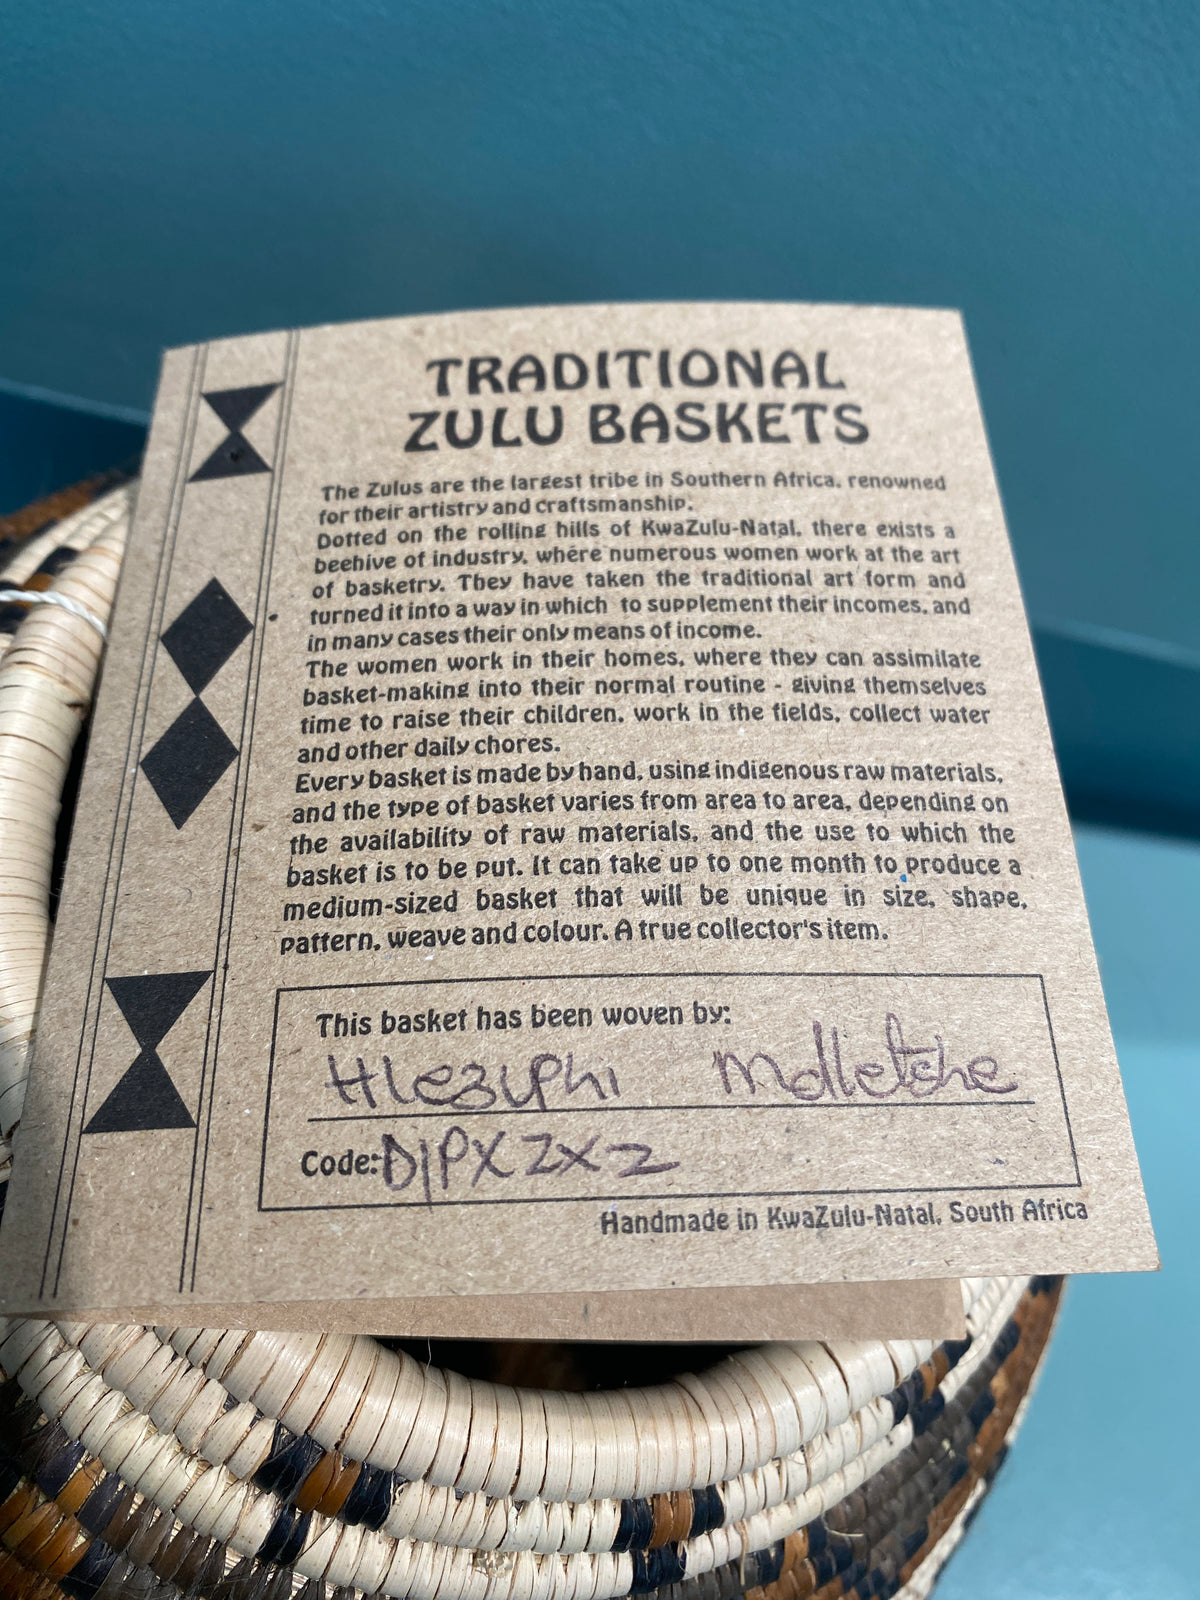 TRADITIONAL
ZULU BASKETS
The Zulus are the largest tribe in Southern Africa, renowned
for their artistry and craftsmanship.
Dotted on the rolling hills of KwaZulu-Natal, there exists a
beehive of industry, where numerous women work at the art
of basketry. They have taken the traditional art form and
turned it into a way in which to supplement their incomes, and
in many cases their only means of income.
The women work in their homes, where they can assimilate
basket-making into their normal routine - giving themselves
time to raise their children, work in the fields, collect water
and other daily chores.
Every basket is made by hand, using indigenous raw materials,
and the type of basket varies from area to area, depending on
the availability of raw materials, and the use to which the
basket is to be put. It can take up to one month to produce a
medium-sized basket that will be unique in size, shape,
pattern, weave and colour. A true collector's item.
This basket has been woven by:
Hleziphi
Code:
Handmade in KwaZulu-Natal, South Africa